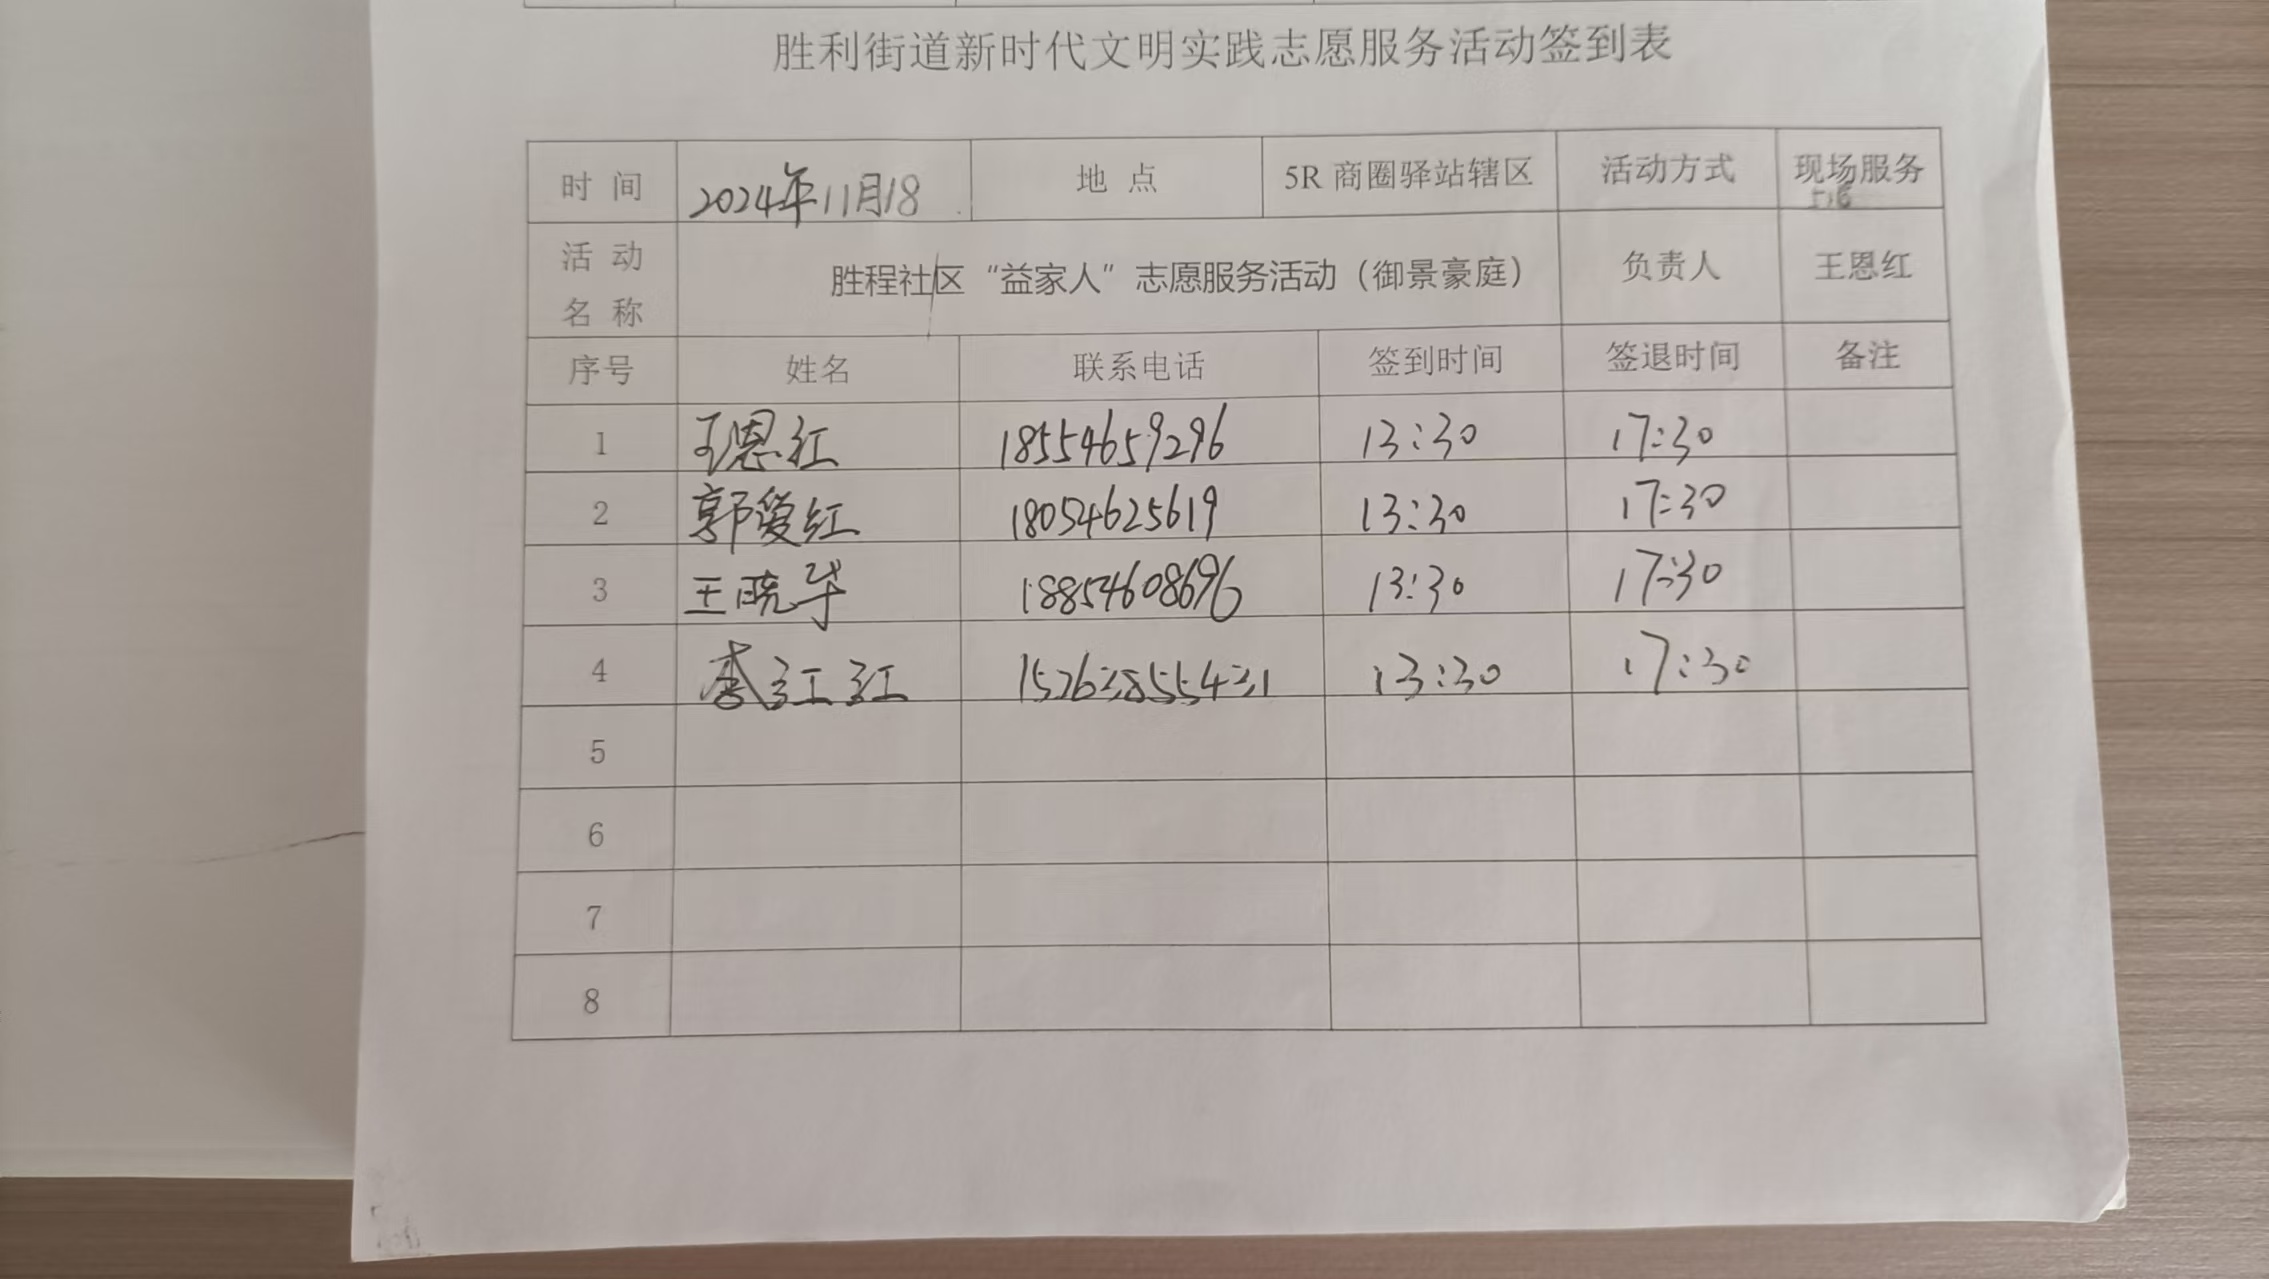 胜利街道新时代文明实践志愿服务活动签到表
时 间 2024年11月18 地 点 5R 商圈驿站辖区 活动方式 现场服务
活 动 名 称 胜程社区“益家人”志愿服务活动（御景豪庭） 负责人 王恩红
序号 姓名 联系电话 签到时间 签退时间 备注
1 王恩红 18554659296 13:30 17:30
2 郭爱红 18054625619 13:30 17:30
3 王晓华 18854608696 13:30 17:30
4 李江红 13:30 17:30
5
6
7
8